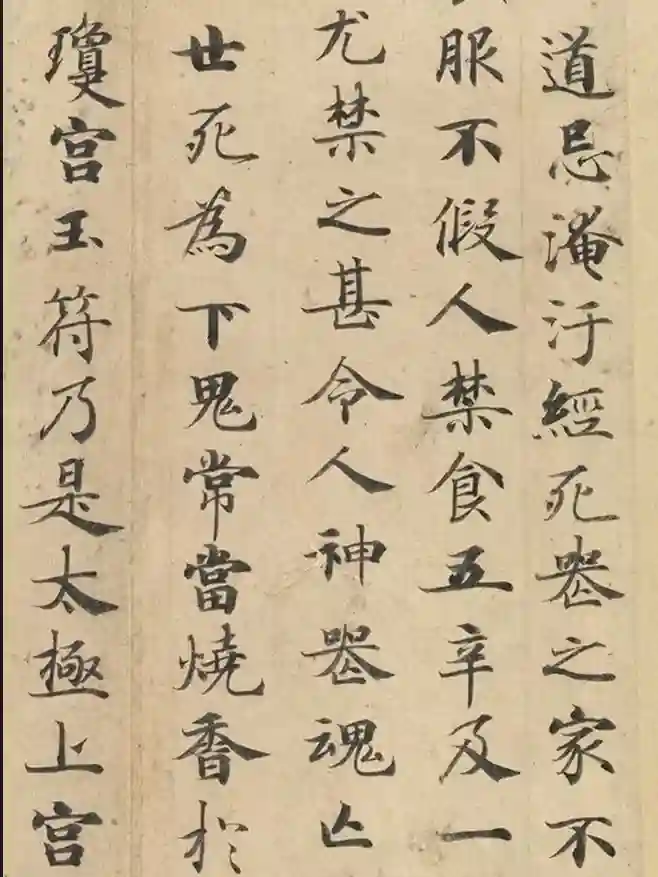 道忌淹汙經死喪之家不
服不假人禁食五辛及一
尤禁之甚令人神喪魂亡
世死為下鬼常當燒香於
瓊宮玉符乃是太極上宮